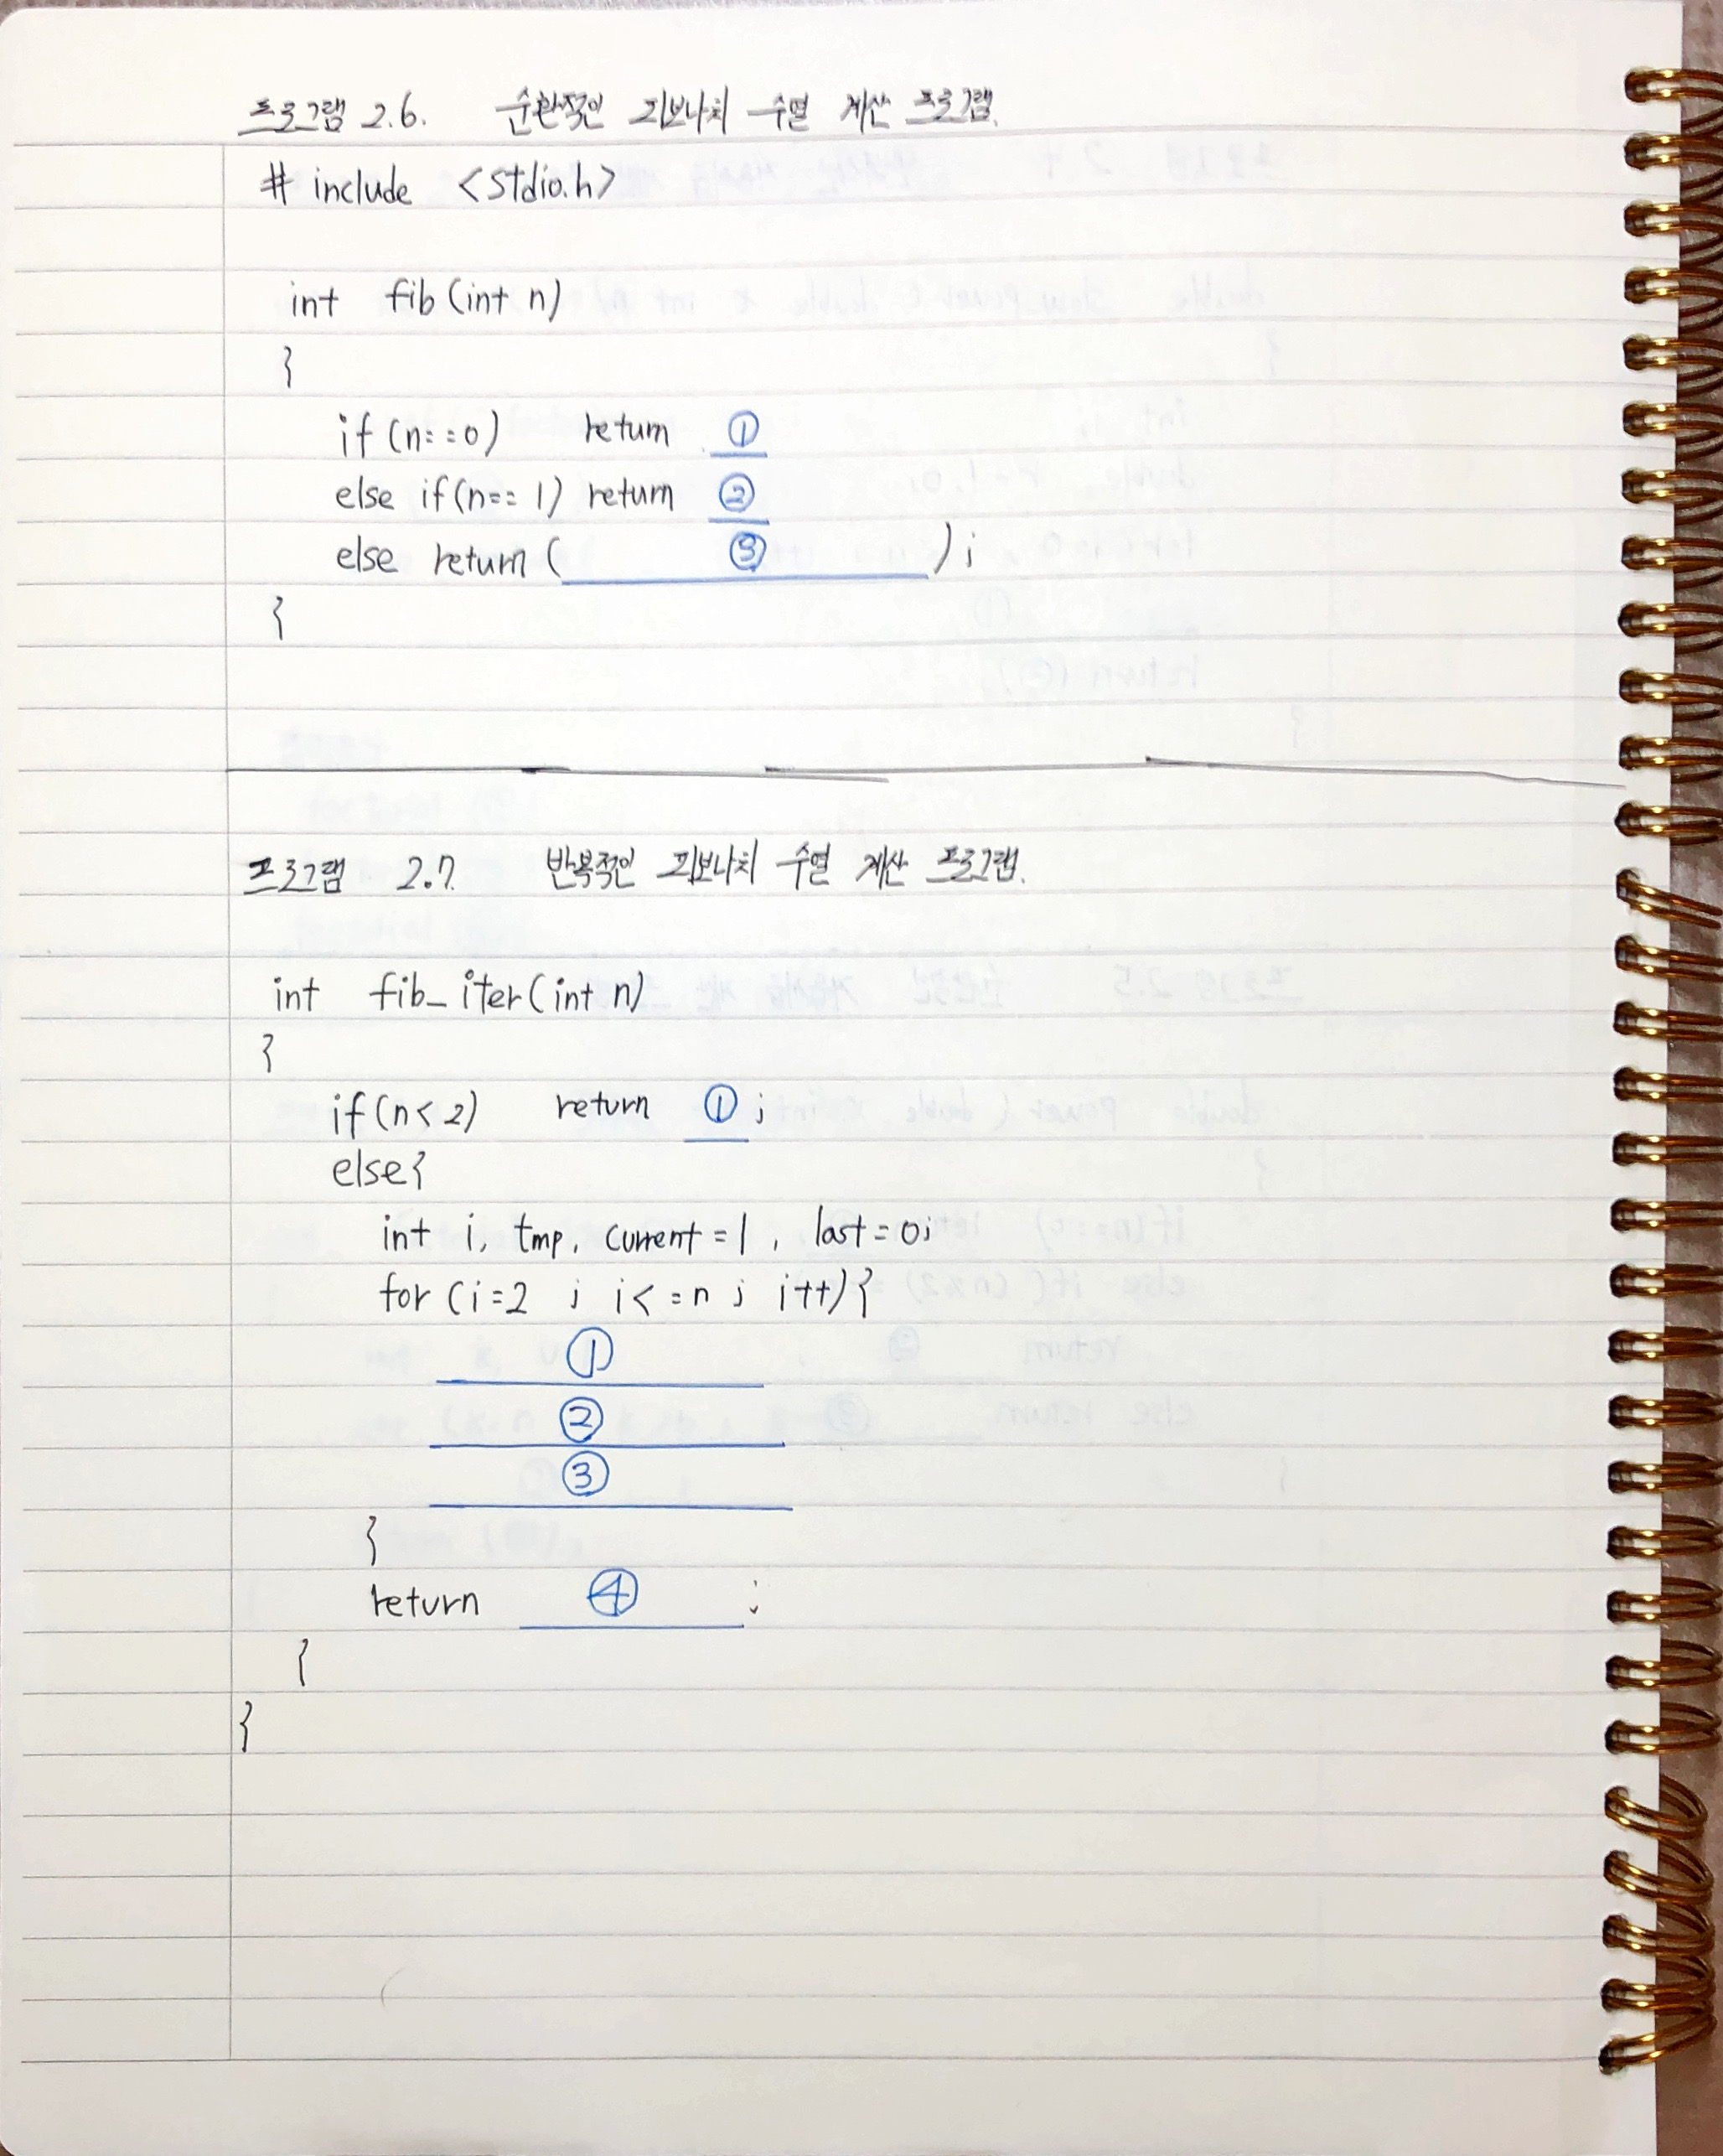 프로그램 2.6. 순환적인 피보나치 수열 계산 프로그램.
# include <stdio.h>
int fib (int n)
{
if (n==0) return ①
else if (n==1) return ②
else return ( ③ );
}
프로그램 2.7. 반복적인 피보나치 수열 계산 프로그램.
int fib_iter (int n)
{
if (n<2) return ①;
else{
int i, tmp, current=1, last=0;
for (i=2 ; i<=n ; i++){
①
②
③
}
return ④ ;
}
}